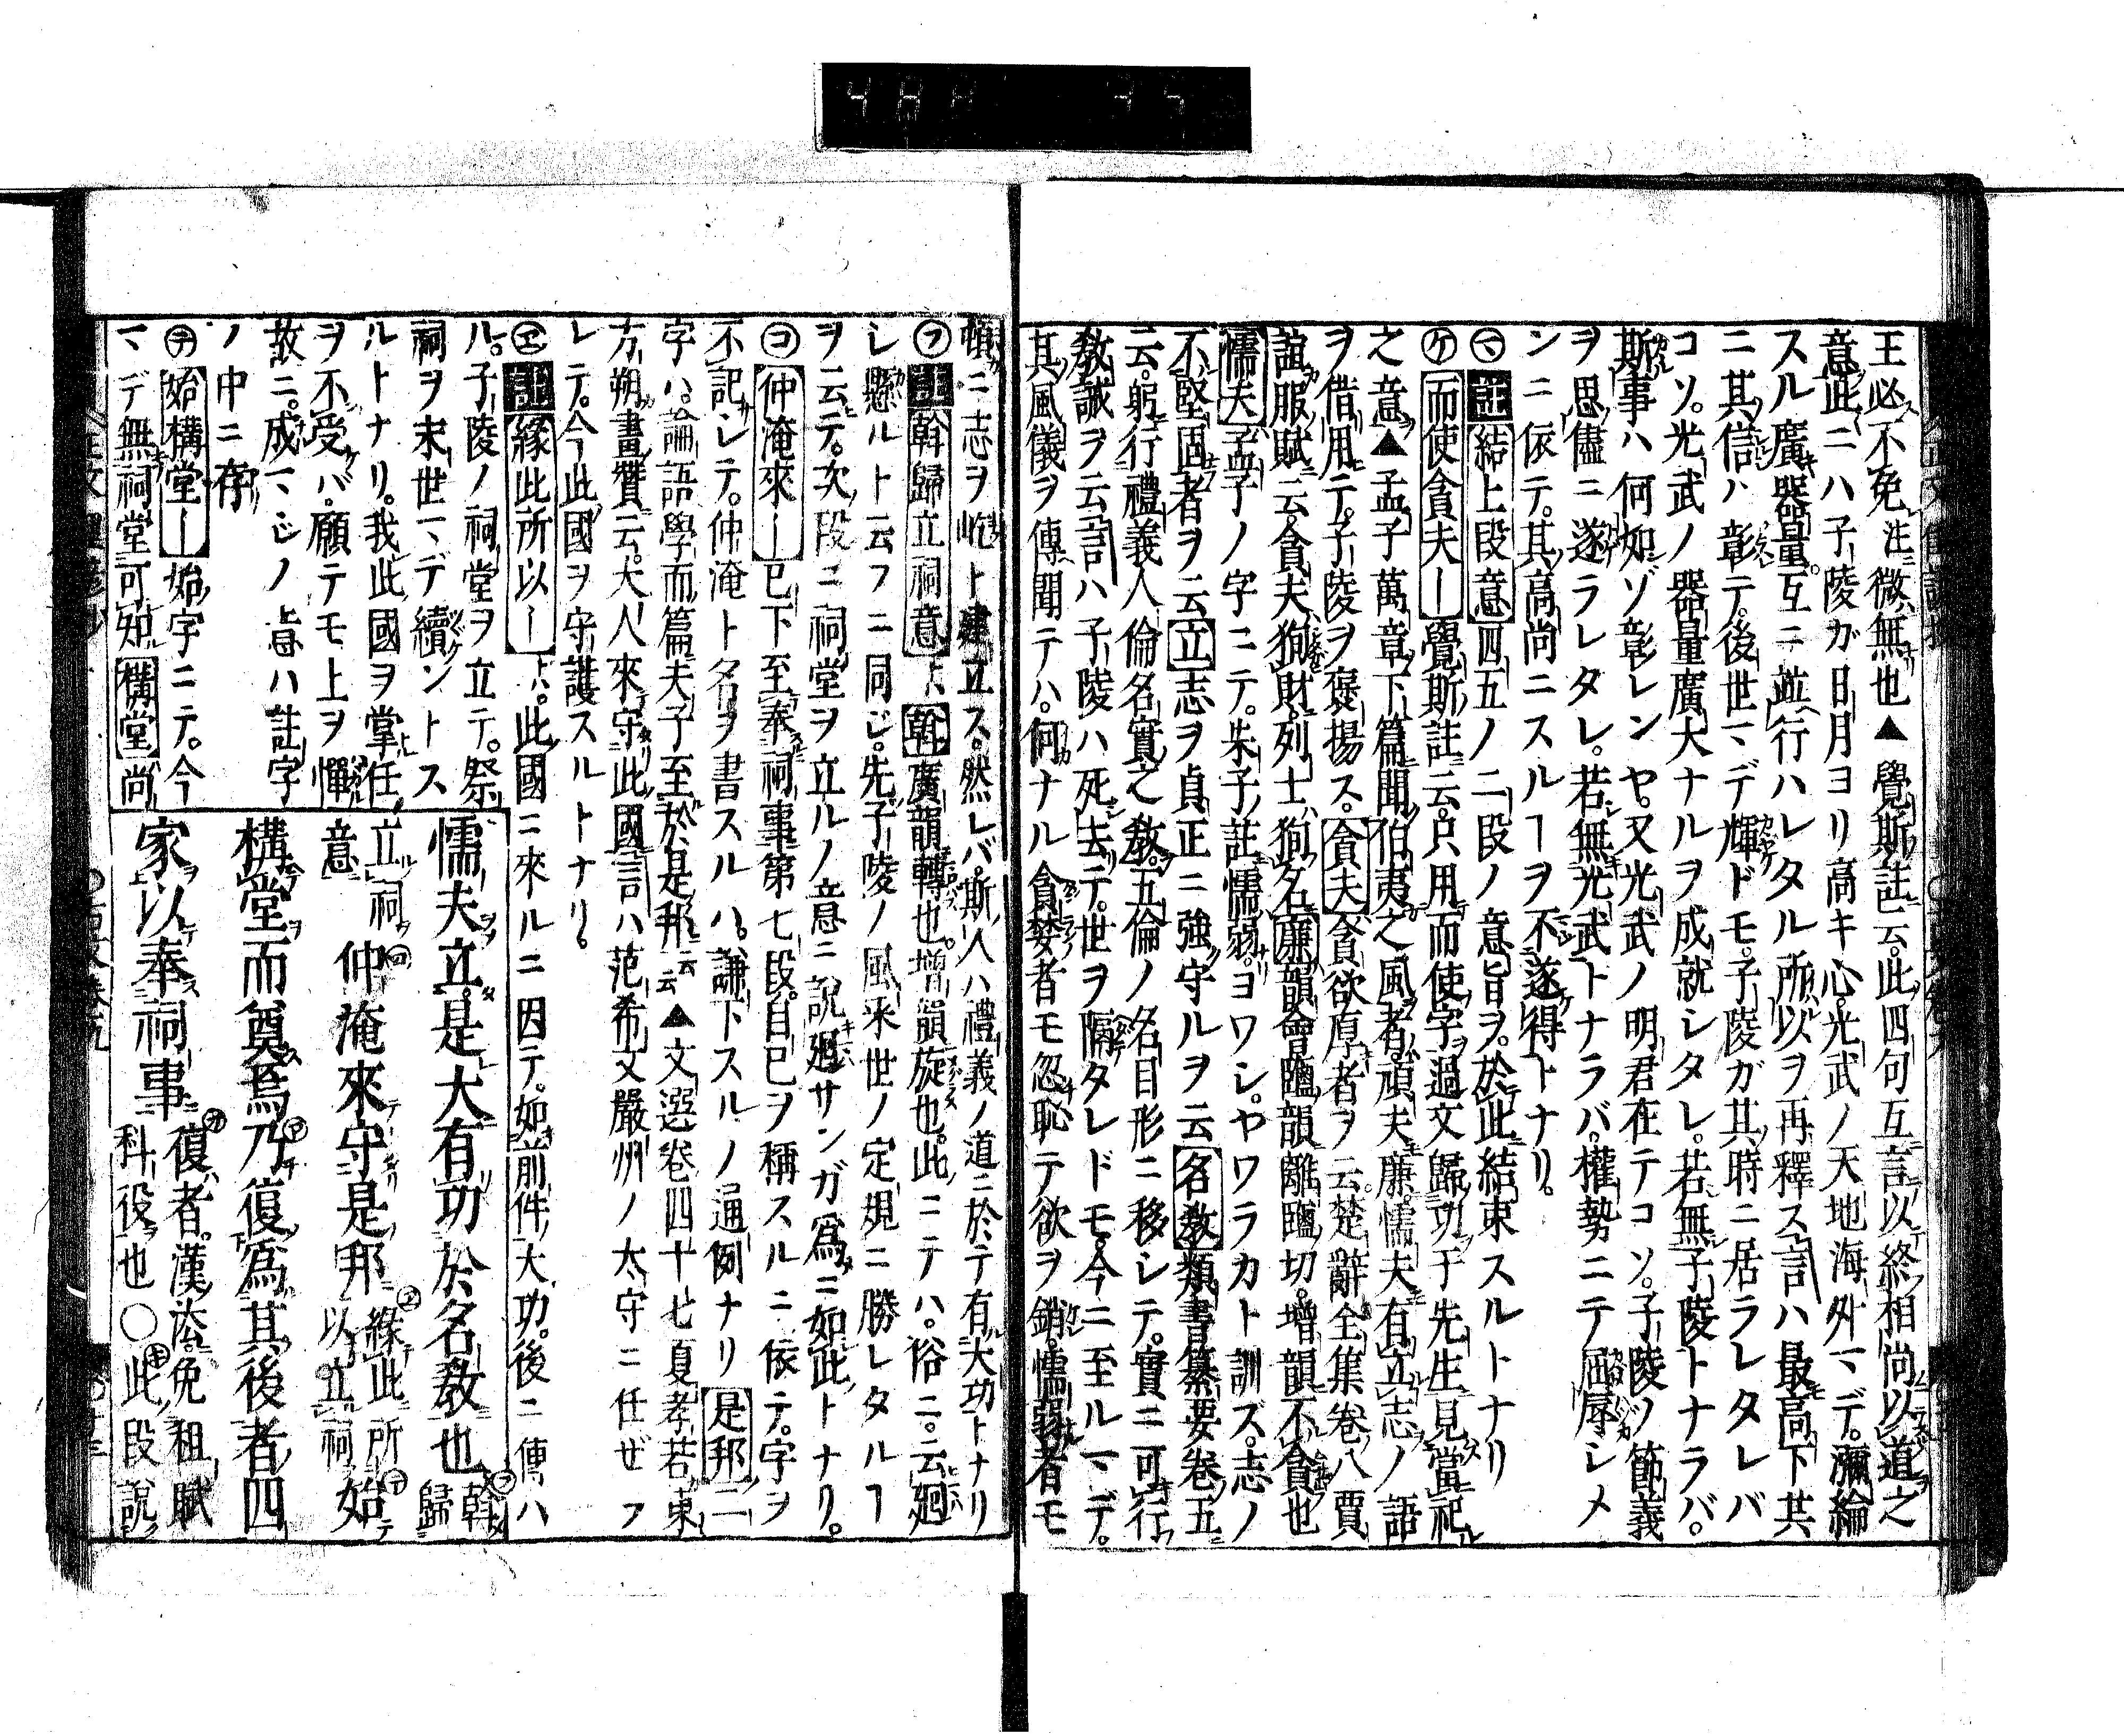 王必不免注微無也▲覺斯註云。此四句互言以終相尚以道之
意此ニハ子陵ガ日月ヨリ高キ心。光武ノ天地海外マデ。瀰綸
スル廣器量。互ニ並行ハレタル所以ヲ再釋ス言ハ最高下共
ニ其信ハ彰テ。後世マデ輝ドモ。子陵ガ其時ニ居ラレタレバ
コソ。光武ノ器量廣大ナルヲ成就シタレ。若無子陵トナラバ。
斯事ハ何如ゾ彰レンヤ。又光武ノ明君在テコソ。子陵ノ節義
ヲ思儘ニ遂ラレタレ。若無光武トナラバ。權勢ニテ屈辱シメ
ンニ依テ。其高尚ニスルヿヲ不遂得トナリ。
㋮註結上段意四五ノ二段ノ意旨ヲ。於此結束スルトナリ
㋘而使貪夫ー覺斯註云。只用而使字過文歸功于先生見當祀
之意▲孟子萬章下篇聞伯夷之風者。頑夫廉。懦夫有立志ノ語
ヲ借用テ。子陵ヲ褒揚ス。貪夫貪欲厚者ヲ云。楚辭全集卷八賈
誼服賦云貪夫狥財。列士狥名廉韻會鹽韻離鹽切。增韻不貪也
懦夫孟子ノ字ニテ。朱子註懦弱。ヨワシ。ヤワラカト訓ズ。志ノ
不堅固者ヲ云立志ヲ貞正ニ強守ルヲ云名教類書纂要卷五
云。躬行禮義人倫名實之教。五倫ノ名目形ニ移シテ。實ニ可行
教誡ヲ云言ハ子陵ハ死去テ。世ヲ隔タレドモ。今ニ至ルマデ。
其風儀ヲ傳聞テハ。何ナル貪婪者モ忽恥テ欲ヲ銷。懦弱者モ
頓ニ志ヲ屹ト建立ス。然レバ。斯人ハ禮義ノ道ニ於テ有大功トナリ
㋫註斡歸立祠意上。斡廣韻轉也。增韻旋也。此ニテハ。俗ニ。云廻
シ懸ルト云フニ同ジ。先子陵ノ風釆世ノ定規ニ勝レタルヿ
ヲ云テ。次段ニ祠堂ヲ立ルノ意ニ說廻サンガ爲ニ如此トナリ。
㋙仲淹來ー已下至奉祠事第七段。自已ヲ稱スルニ依テ。字ヲ
不記シテ。仲淹ト名ヲ書スルハ。謙下スルノ通例ナリ是邦二
字ハ。論語學而篇夫子至於是邦云云▲文選卷四十七夏孝若東
方朔畫贊云。大人來守此國言ハ范希文嚴州ノ太守ニ任ゼラ
レテ。今此國ヲ守護スルトナリ。
㋓註緣此所以ー上。此國ニ來ルニ因テ。如前件大功。後ニ傳ハ
ル。子陵ノ祠堂ヲ立テ。祭
祠ヲ末世マデ續ントス
ルトナリ。我此國ヲ掌任
ヲ不受バ。願テモ上ヲ憚
故ニ。成マジノ意ハ註字
ノ中ニ存
㋢始構堂ー始字ニテ。今
マデ無祠堂可知構堂尚
懦夫立。是大有功於名教也斡歸
立祠意仲淹來守是邦緣此所以立祠始
構堂而奠焉。乃復爲其後者四
家以奉祠事復者。漢法。免租賦科役也〇此段說